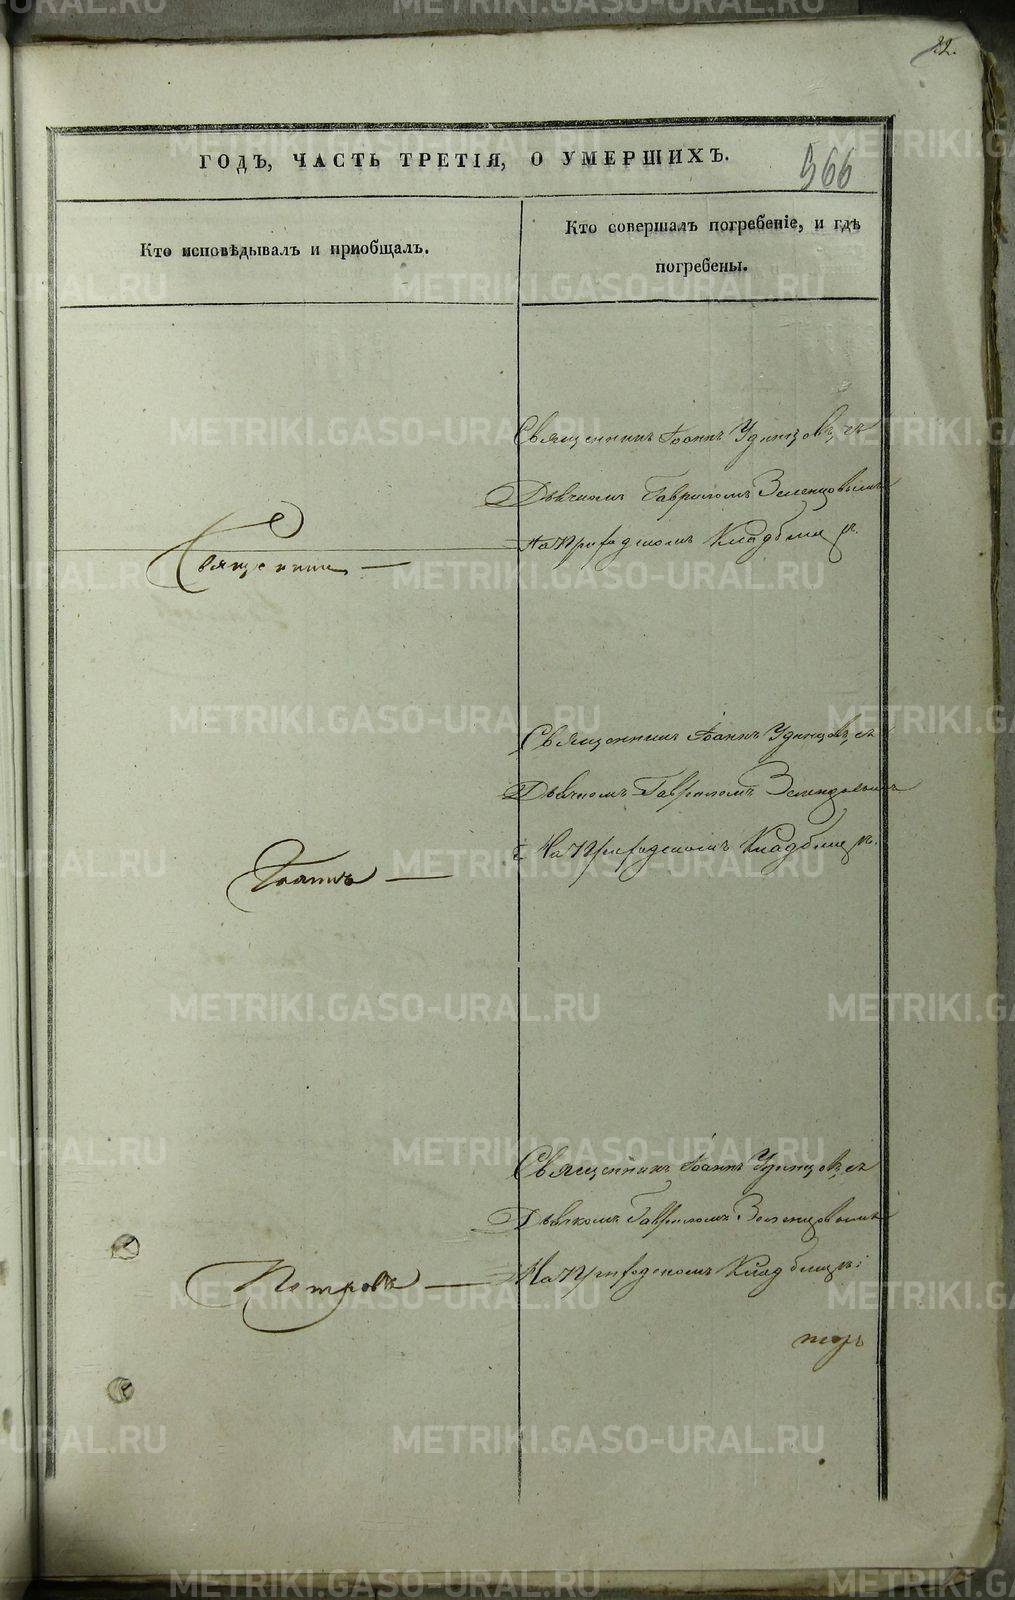 22.
ГОДЪ, ЧАСТЬ ТРЕТІЯ, О УМЕРШИХЪ.
366
Кто исповѣдывалъ и приобщалъ.
Кто совершалъ погребеніе, и гдѣ
погребены.
Священникъ Іоаннъ Удинцовъ, съ
Дьячкомъ Гавриломъ Зеленцовымъ
На Приходскомъ Кладбищѣ.
Священникъ
Священникъ Іоаннъ Удинцовъ, съ
Дьячкомъ Гавриломъ Зеленцовымъ
На Приходскомъ Кладбищѣ.
Іоаннъ
Священникъ Іоаннъ Удинцовъ, съ
Дьячкомъ Гавриломъ Зеленцовымъ
На Приходскомъ Кладбищѣ
Петровъ
METRIKI.GASO-URAL.RU